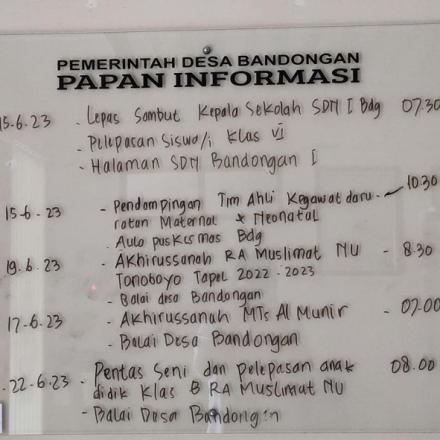 PEMERINTAH DESA BANDONGAN
PAPAN INFORMASI
15-6-23 - Lepas Sambut Kepala Sekolah SDN I Bdg 07.30
- Pelepasan Siswa/i Klas VI
- Halaman SDN Bandongan I
15-6-23 - Pendampingan Tim Ahli Kegawat daru- 10.30
ratan Maternal & Neonatal
- Aula puskesmas Bdg
19.6.23 - Akhirussanah RA Muslimat NU - 8.30
Tonoboyo Tapel 2022-2023
- Balai desa Bandongan
17-6.23 - Akhirussanah MTs Al Munir - 07.00
- Balai Desa Bandongan
22-6.23 - Pentas Seni dan pelepasan anak 08.00
didik Klas B RA Muslimat NU
- Balai Desa Bandongan